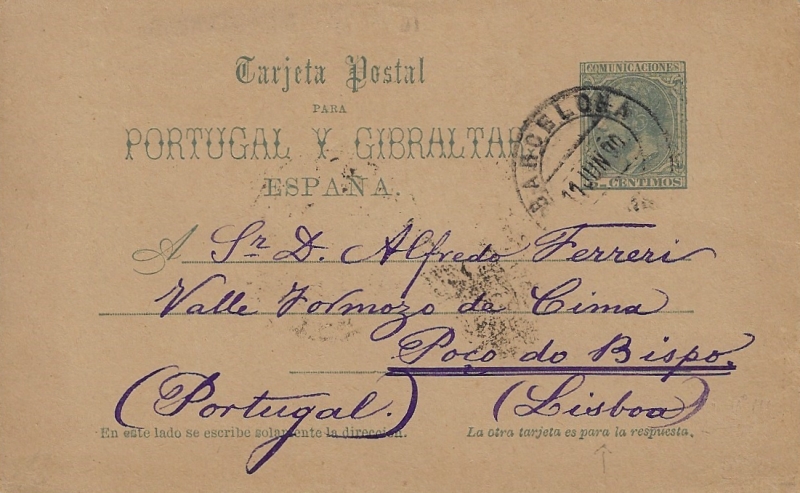 Tarjeta Postal
COMUNICACIONES
PARA
PORTUGAL Y GIBRALTAR
BARCELONA
11 JUN
ESPAÑA.
CENTIMOS
A Sr. D. Alfredo Ferreri
Valle Formozo da Cima
Poço do Bispo.
(Portugal.) (Lisboa)
En este lado se escribe solamente la dirección. La otra tarjeta es para la respuesta.